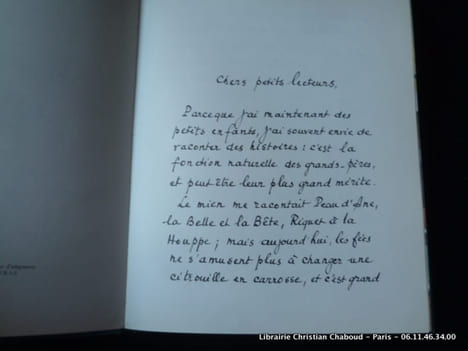 Chers petits lecteurs,
Parceque j'ai maintenant des
petits enfants, j'ai souvent envie de
raconter des histoires : c'est la
fonction naturelle des grands-pères,
et peut-être leur plus grand mérite.
Le mien me racontait Peau d'Ane,
la Belle et la Bête, Riquet à la
Houppe ; mais aujourd'hui, les fées
ne s'amusent plus à changer une
citrouille en carrosse, et c'est grand
Librairie Christian Chaboud - Paris - 06.11.46.34.00